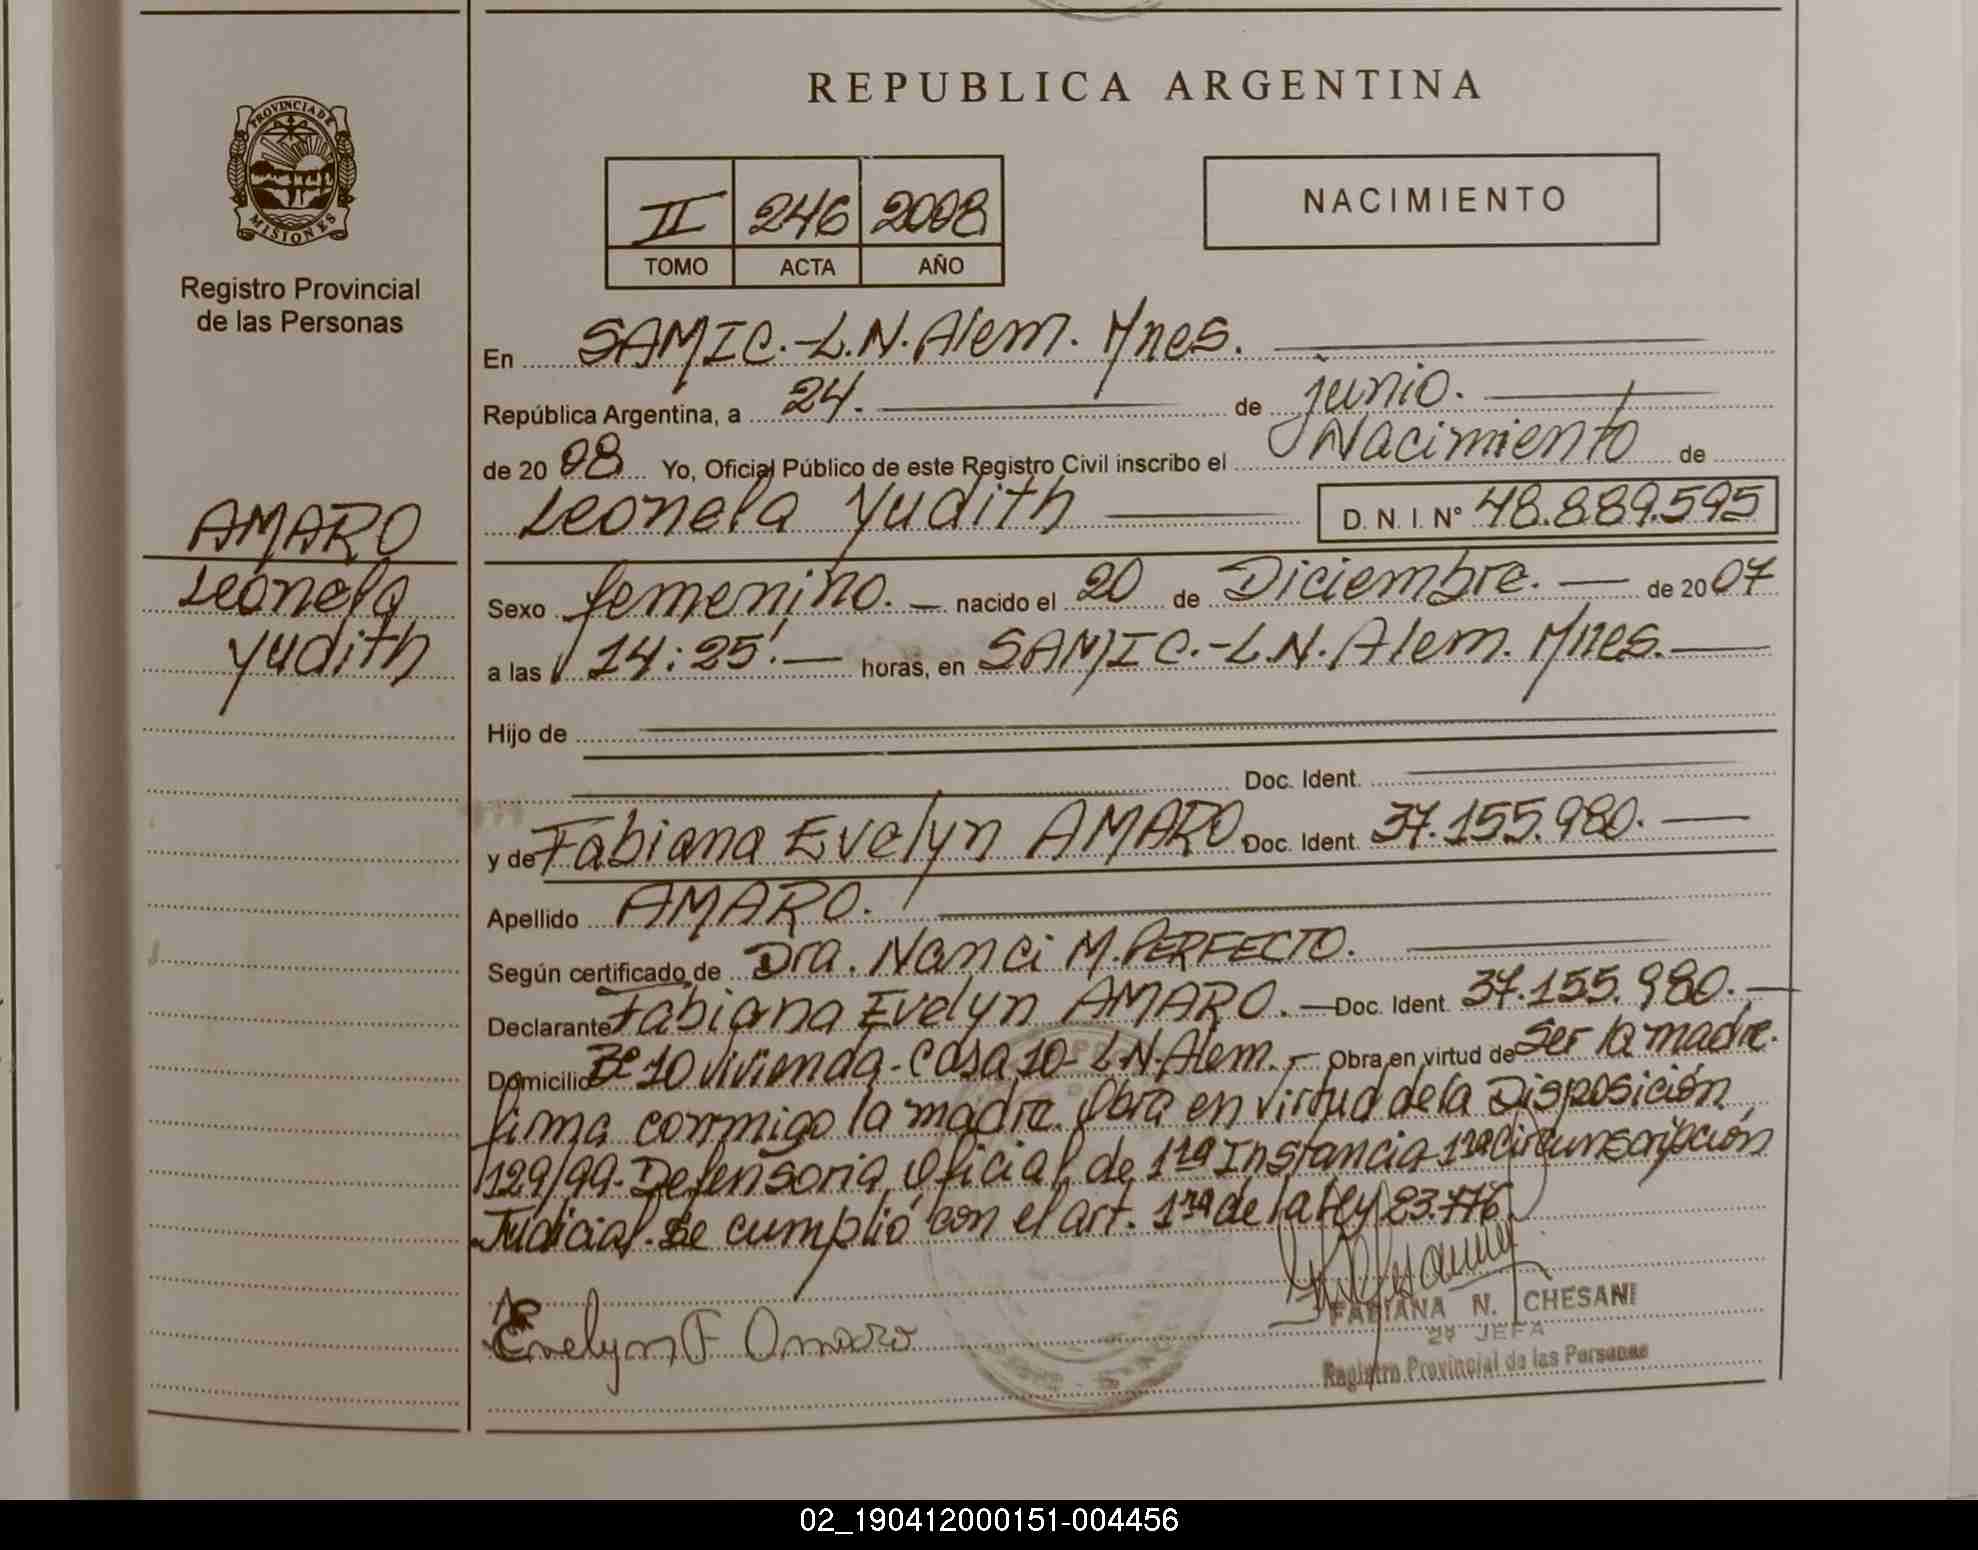 PROVINCIA DE
MISIONES
Registro Provincial
de las Personas
AMARO
Leonela
Yudith
REPUBLICA ARGENTINA
II 246 2008
TOMO ACTA AÑO
NACIMIENTO
En SAMIC.-L.N.Alem. Mnes.
República Argentina, a 24. de junio.
de 20 08 Yo, Oficial Público de este Registro Civil inscribo el Nacimiento de
Leonela Yudith D. N. I. N° 48.889.595
Sexo femenino. nacido el 20 de Diciembre. de 20 07
a las 14:25'. horas, en SAMIC.-L.N.Alem. Mnes.
Hijo de
Doc. Ident.
y de Fabiana Evelyn AMARO Doc. Ident. 37.155.980.
Apellido AMARO.
Según certificado de Dra. Nanci M. PERFECTO.
Declarante Fabiana Evelyn AMARO. Doc. Ident. 37.155.980.
Domicilio Bº 10 vivienda-casa 10-L.N.Alem. Obra en virtud de Ser la madre.
firma conmigo la madre. Obra en virtud de la Disposición
129/99-Defensoria Oficial de 1ra Instancia 1ra Circunscripción
Judicial. Se cumplió con el art. 1ra de la ley 23.776
Evelyn F Amaro
FABIANA N. CHESANI
2ª JEFA
Registro Provincial de las Personas
02_190412000151-004456